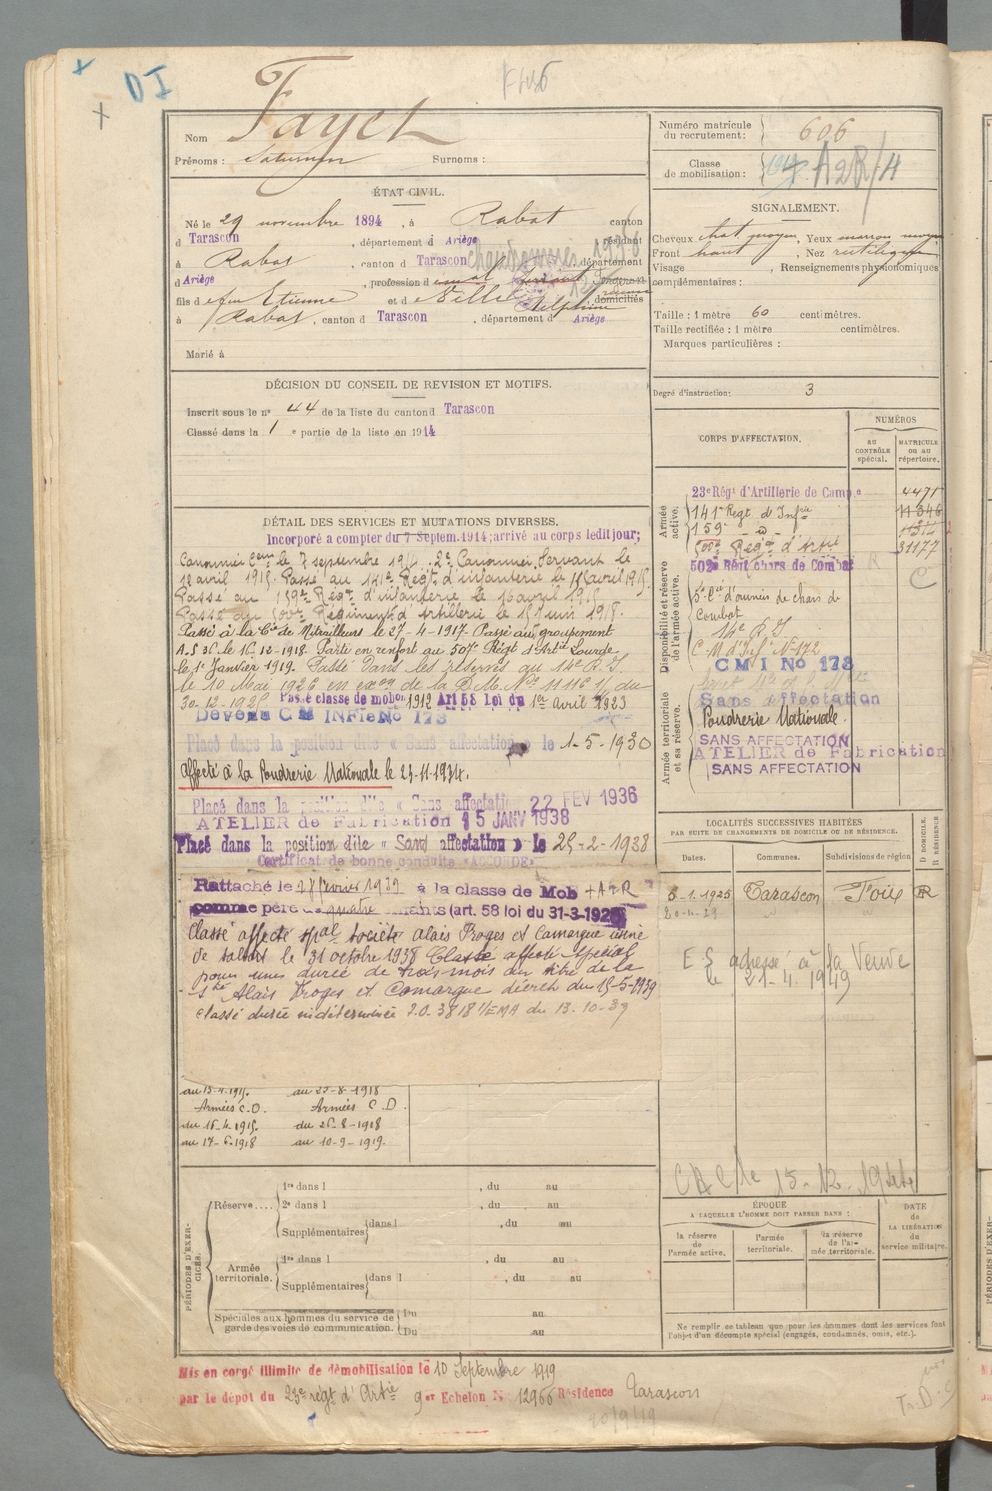 DI
Nom Fayet
Prénoms : Saturnin Surnoms :
Numéro matricule du recrutement : 606
Classe de mobilisation : A2R/4
ÉTAT CIVIL.
Né le 29 novembre 1894, à Rabat canton
d Tarascon, département d Ariège, résidant
à Rabat, canton d Tarascon, département
d Ariège, profession d
fils d efeu Etienne et d eVille Delphine domiciliés
à Rabat, canton d Tarascon, département d Ariège
Marié à
SIGNALEMENT.
Cheveux chat moyen, Yeux marron moyen
Front haut, Nez rectiligne
Visage , Renseignements physionomiques
complémentaires :
Taille : 1 mètre 60 centimètres.
Taille rectifiée : 1 mètre centimètres.
Marques particulières :
Degré d'instruction : 3
DÉCISION DU CONSEIL DE REVISION ET MOTIFS.
Inscrit sous le n° 44 de la liste du canton d Tarascon
Classé dans la 1e partie de la liste en 1914
DÉTAIL DES SERVICES ET MUTATIONS DIVERSES.
Incorporé à compter du 7 Septem. 1914; arrivé au corps ledit jour;
Canonnier le 7 septembre 1914. 2e Canonnier Servant le
12 avril 1915. Passé au 141e Régt d'infanterie le 15 avril 1915.
Passé au 159e Régt d'infanterie le 16 avril 1915
Passé au 500e Régiment d'Artillerie le 18 juin 1918.
Passé à la Cie de Mitrailleurs le 27-4-1917. Passé au groupement
A.S 36 le 16-12-1918. Parti en renfort au 507e Régt d'Artie Lourde
le 1er Janvier 1919. Passé dans les réserves au 14e R.I
le 10 Mai 1926 en exon de la D.M. No 1116 1/ du
30-12-1925. Passé classe de mobon 1912 Art 58 Loi du 1er Avril 1923
Devenu C M INFie No 173
Placé dans la position dite « Sans affectation » le 1-5-1930
affecté à la Poudrerie Nationale le 23-11-1934.
Placé dans la position dite « Sans affectation 22 FEV 1936
ATELIER de Fabrication 15 JANV 1938
Placé dans la position dite « Sans affectation » le 25-2-1938
Certificat de bonne conduite «ACCORDÉ»
Rattaché le février 1939 à la classe de Mob
comme père de quatre enfants (art. 58 loi du 31-3-1928
Classé affecté spal société Alais Froges et Camargue usine
de Sabart le 31 octobre 1938 Classé affecté Spécial
pour une durée de trois mois au titre de la
Sté Alais Froges et Camargue décret du 18-5-1939
Classé durée indéterminée D.O. 3818 1/EMA du 13-10-39
au 15-4-1915. au 25-8-1918
Armées C.D. Armées C.D.
du 16-4-1915. du 26-8-1918
au 17-6-1918 au 10-9-1919.
CORPS D'AFFECTATION.
NUMÉROS
AU CONTRÔLE spécial.
MATRICULE ou au répertoire.
Armée active.
23e Régt d'Artillerie de Camp.e 4471
141e Régt d'Infie 11346
159e d° 1314
500e Régt d'Artie 31177
502e Régt chars de Combat
Disponibilité et réserve de l'armée active.
5e Cie d'ouvriers de chars de
Combat
14e R.I
C.M d'Infie No 172
CMI No 173
Armée territoriale et sa réserve.
Sans affectation
Poudrerie Nationale.
SANS AFFECTATION
ATELIER de Fabrication
SANS AFFECTATION
LOCALITÉS SUCCESSIVES HABITÉES
PAR SUITE DE CHANGEMENTS DE DOMICILE OU DE RÉSIDENCE.
Dates. Communes. Subdivisions de région D DOMICILE. R RÉSIDENCE
8-1-1925 Tarascon Foix R
E.S adressé à la Vende
le 21-4.1949
PÉRIODES D'EXERCICES.
Réserve....
1re dans l , du au
2e dans l , du au
Supplémentaires dans l , du au
Armée territoriale.
1re dans l , du au
Supplémentaires dans l , du au
Spéciales aux hommes du service de garde des voies de communication.
Du au
Du au
ÉPOQUE
A LAQUELLE L'HOMME DOIT PASSER DANS :
la réserve de l'armée active.
l'armée territoriale.
la réserve de l'armée territoriale.
DATE de LA LIBÉRATION du service militaire.
Ne remplir ce tableau que pour les hommes dont les services font
l'objet d'un décompte spécial (engagés, condamnés, omis, etc.).
Mis en congé illimité de démobilisation le 10 Septembre 1919
par le dépôt du 23e régt d'Artie 9er Echelon N° 12966 Résidence Tarascon
20/9/19